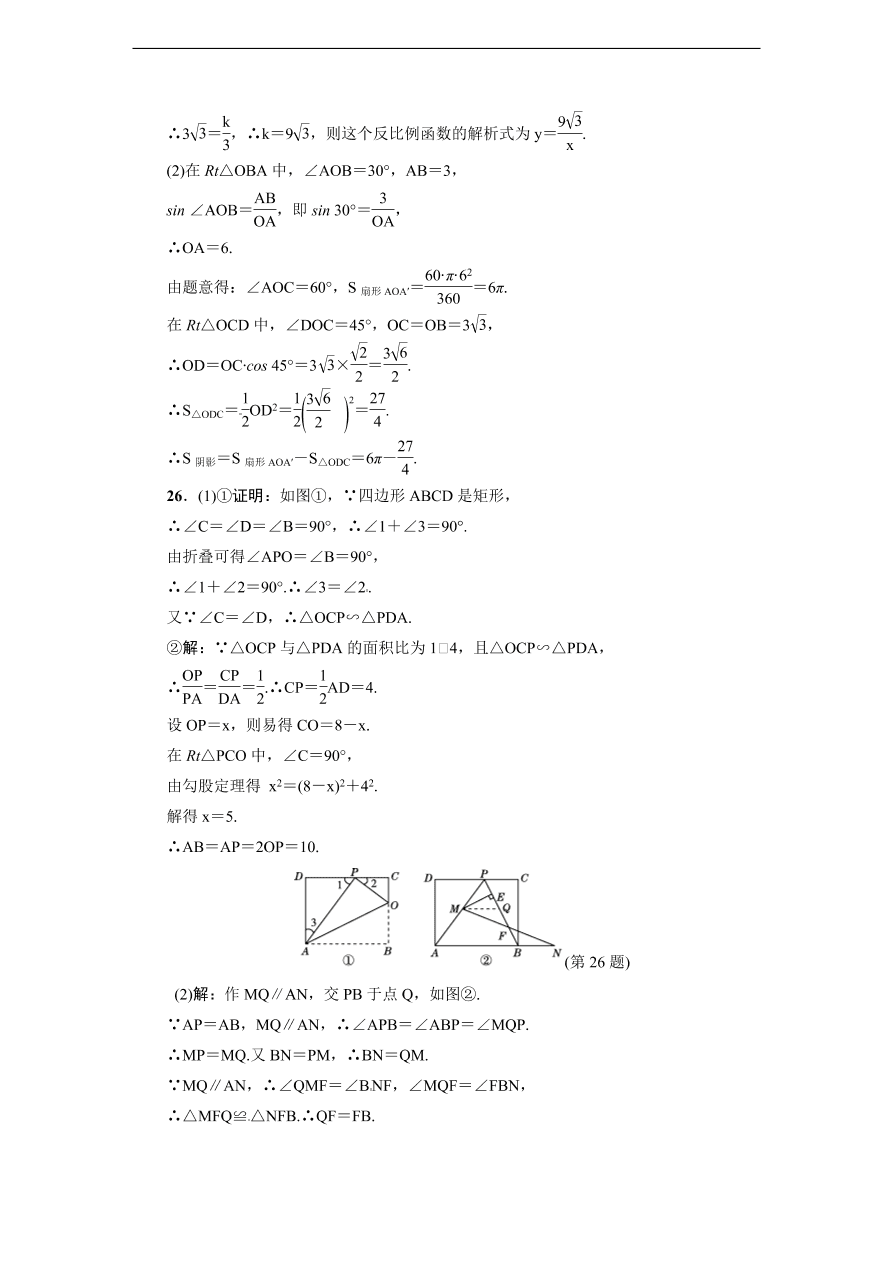 ∴3√3＝k/3，∴k＝9√3，则这个反比例函数的解析式为 y＝9√3/x.
(2)在 Rt△OBA 中，∠AOB＝30°，AB＝3，
sin ∠AOB＝AB/OA，即 sin 30°＝3/OA，
∴OA＝6.
由题意得：∠AOC＝60°，S 扇形 AOA′＝60·π·6²/360＝6π.
在 Rt△OCD 中，∠DOC＝45°，OC＝OB＝3√3，
∴OD＝OC·cos 45°＝3√3×√2/2＝3√6/2.
∴S△ODC＝1/2OD²＝1/2(3√6/2)²＝27/4.
∴S 阴影＝S 扇形 AOA′－S△ODC＝6π－27/4.
26．(1)①证明：如图①，∵四边形 ABCD 是矩形，
∴∠C＝∠D＝∠B＝90°，∴∠1＋∠3＝90°.
由折叠可得∠APO＝∠B＝90°，
∴∠1＋∠2＝90°.∴∠3＝∠2.
又∵∠C＝∠D，∴△OCP∽△PDA.
②解：∵△OCP 与△PDA 的面积比为 1□4，且△OCP∽△PDA，
∴OP/PA＝CP/DA＝1/2.∴CP＝1/2AD＝4.
设 OP＝x，则易得 CO＝8－x.
在 Rt△PCO 中，∠C＝90°，
由勾股定理得 x²＝(8－x)²＋4².
解得 x＝5.
∴AB＝AP＝2OP＝10.
D P C
1 2
O
3
A B
①
D P C
E
M Q
F
A B N
②
(第 26 题)
(2)解：作 MQ∥AN，交 PB 于点 Q，如图②.
∵AP＝AB，MQ∥AN，∴∠APB＝∠ABP＝∠MQP.
∴MP＝MQ.又 BN＝PM，∴BN＝QM.
∵MQ∥AN，∴∠QMF＝∠BNF，∠MQF＝∠FBN，
∴△MFQ≌△NFB.∴QF＝FB.